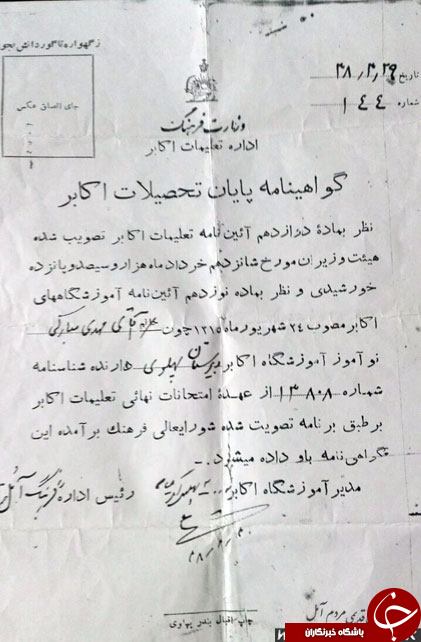 زگهواره تا گور دانش بجو
تاریخ ۲۸/۳/۲۹
شماره ۱۴۴
جای الصاق عکس
وزارت فرهنگ
اداره تعلیمات اکابر
گواهینامه پایان تحصیلات اکابر
نظر بمادهٔ دوازدهم آئین‌نامه تعلیمات اکابر تصویب شده
هیئت وزیران مورخ شانزدهم خرداد ماه هزار و سیصد و پانزده
خورشیدی و نظر بماده نوزدهم آئین‌نامه آموزشگاههای
اکابر مصوب ۲۴ شهریور ماه ۱۳۱۵ چون آقای مهدی مبارکی
نوآموز آموزشگاه اکابر دبیرستان پهلوی دارنده شناسنامه
شماره ۱۳۸۰۸ از عهدهٔ امتحانات نهائی تعلیمات اکابر
برطبق برنامه تصویت شده شورایعالی فرهنك برآمده این
گواهی‌نامه باو داده میشود.-
مدیر آموزشگاه اکابر
رئیس اداره فرهنگ آمل
چاپ اقبال بندر پهلوی
قدری مردم آمل
باشگاه خبرنگاران